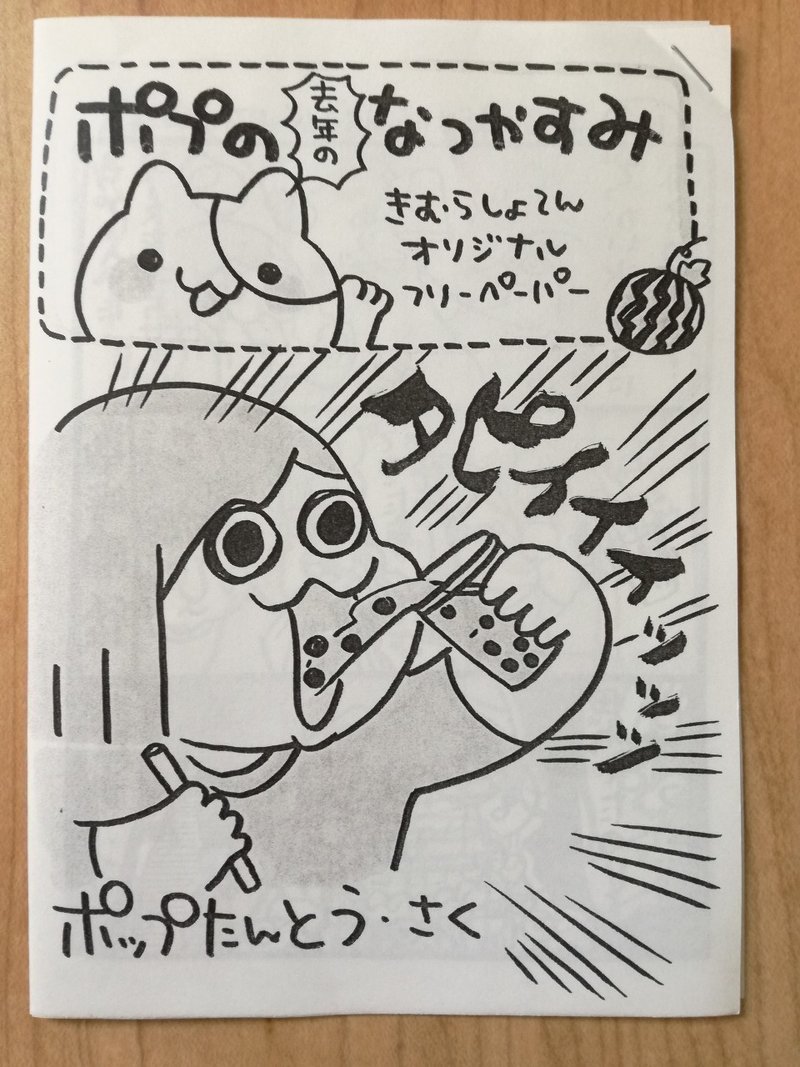 ポプの去年のなつかすみ
きむらしょてん
オリジナル
フリーペーパー
タピィィィッッッ
ポップたんとう・さく